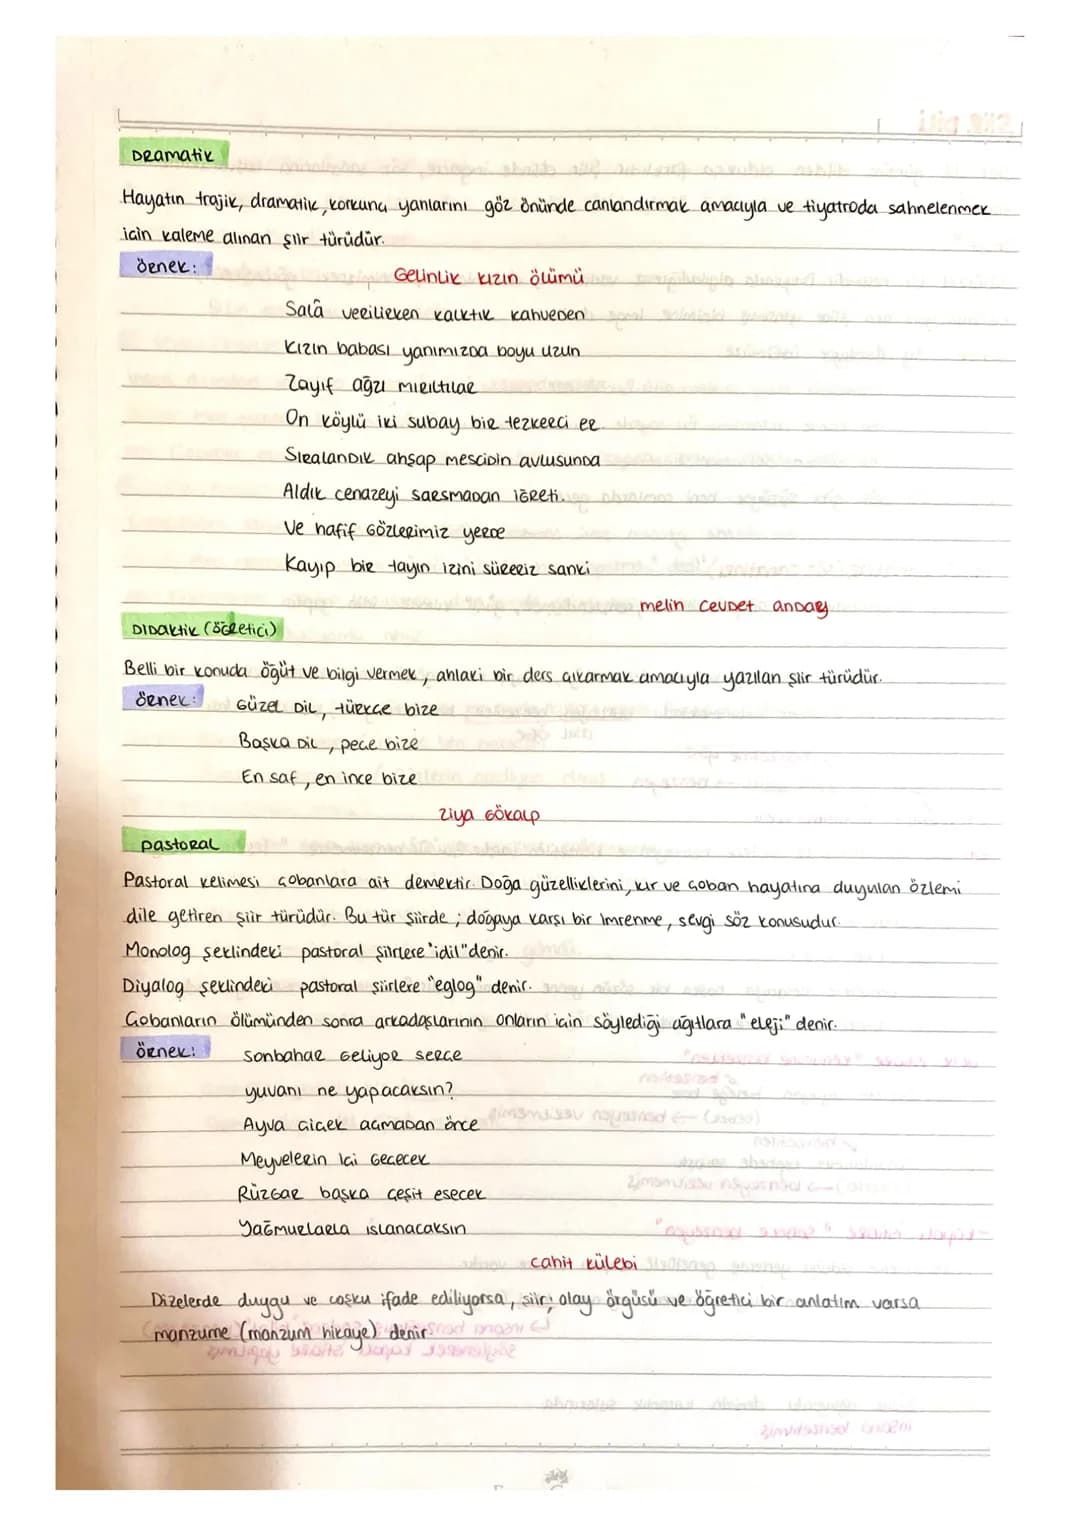 Dramatik
Hayatın trajik, dramatik, korkunç yanlarını göz önünde canlandırmak amacıyla ve tiyatroda sahnelenmek
için kaleme alınan şiir türüdür.
örnek:
Gelinlik kızın ölümü
Salâ verilirken kalktık kahveden
Kızın babası yanımızda boyu uzun
Zayıf ağzı mırıltılar
On köylü iki subay bir tezkereci er
Sıralandık ahşap mescidin avlusunda
Aldık cenazeyi sarsmadan iğreti.
Ve hafif Gözlerimiz yerde
Kayıp bir tayın izini süreriz sanki
melin cevdet anday
Didaktik (öğretici)
Belli bir konuda öğüt ve bilgi vermek, ahlaki bir ders çıkarmak amacıyla yazılan şiir türüdür.
örnek:
Güzel Dil, türkçe bize
Başka Dil, pece bize
En saf, en ince bize
ziya Gökalp
pastoral
Pastoral kelimesi çobanlara ait demektir. Doğa güzelliklerini, kır ve çoban hayatına duyulan özlemi
dile getiren şiir türüdür. Bu tür şiirde ; doğaya karşı bir imrenme, sevgi söz konusudur.
Monolog şeklindeki pastoral şiirlere "idil" denir.
Diyalog şeklindeki pastoral şiirlere "eglog" denir.
Çobanların ölümünden sonra arkadaşlarının onların için söylediği ağıtlara "eleji" denir.
örnek:
Sonbahar geliyor serçe
yuvanı ne yapacaksın?
Ayva çiçek açmadan önce
Meyvelerin içi Geçecek
Rüzgar başka çeşit esecek
Yağmurlarla ıslanacaksın
cahit külebi
Dizelerde duygu ve coşku ifade ediliyorsa, şiir; olay örgüsü ve öğretici bir anlatım varsa
manzume (manzum hikaye) denir.